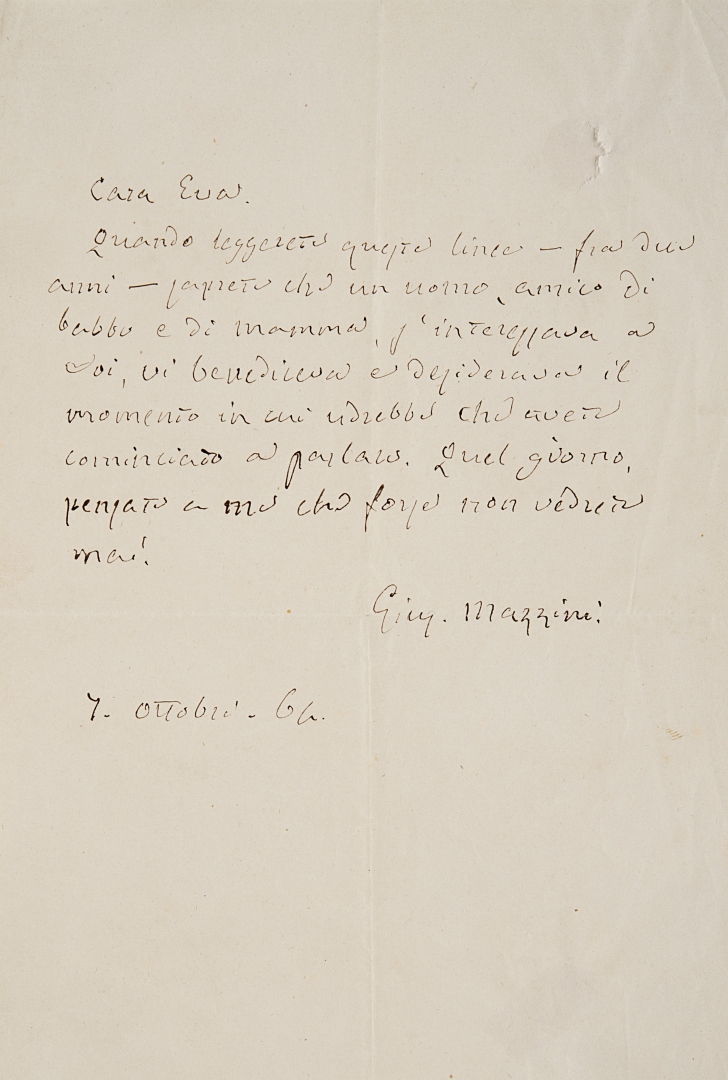 Cara Eva.
Quando leggerete queste linee — fra due
anni — saprete che un uomo, amico di
babbo e di mamma, s'interessava a
voi, vi benediceva e desiderava il
momento in cui udrebbe che avete
cominciato a parlare. Quel giorno,
pensate a me che forse non vedrete
mai!
Gius. Mazzini.
7. ottobre. 64.